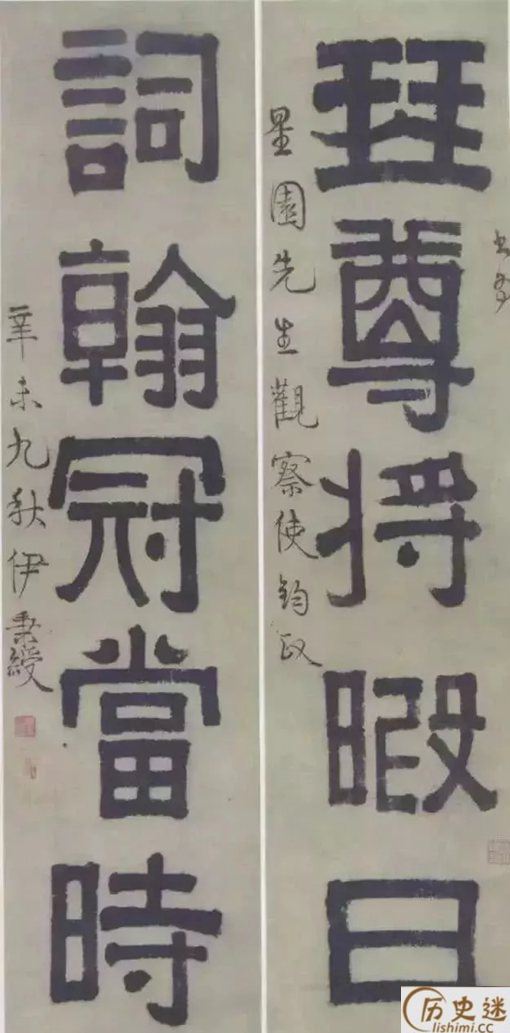 琴尊將暇日
書奉
星園先生觀察使鈞政
詞翰冠當時
辛未九秋伊秉綬
历史迷
lishimi.cc